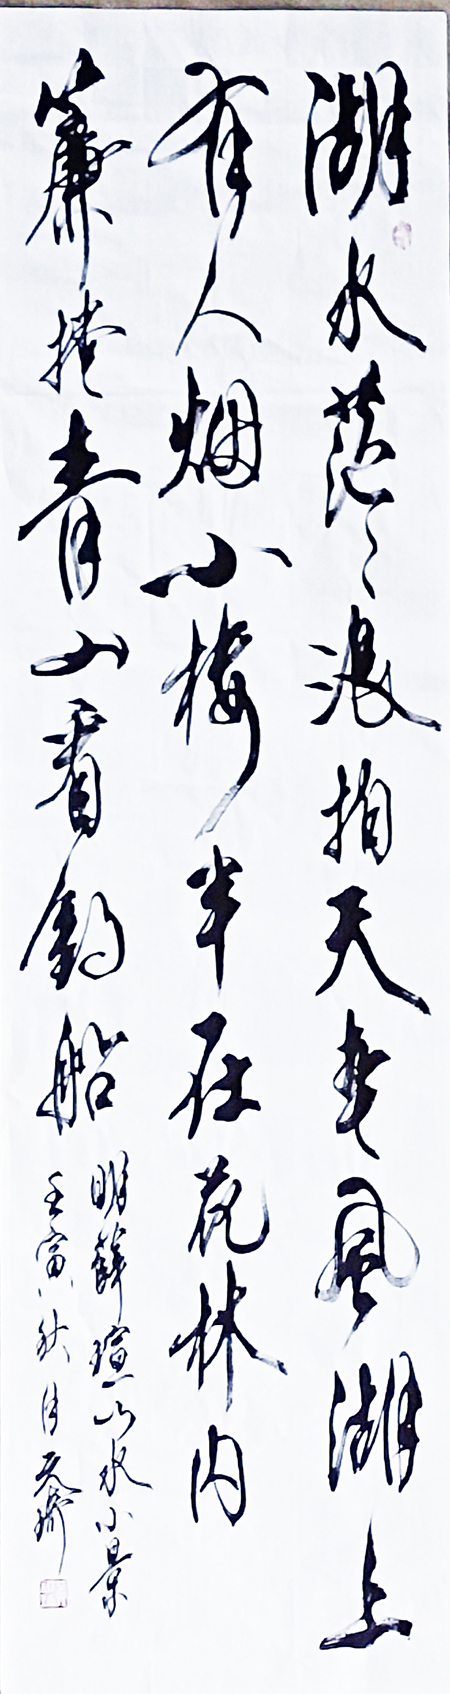 湖水茫々浪拍天春風湖上
有人烟小樓半在花林内
簾捲青山看釣船
明薛瑄山水小景
壬寅秋月